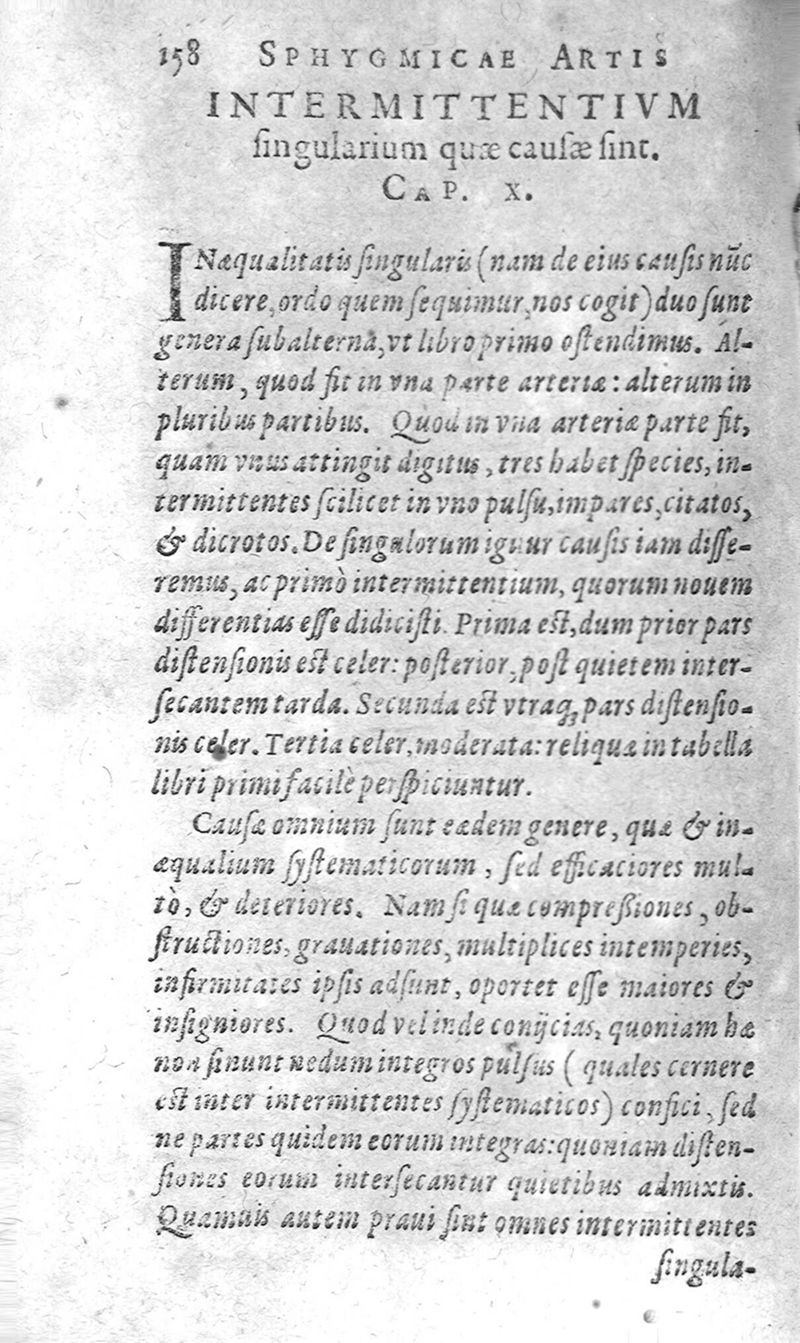 158 SPHYGMICAE ARTIS
INTERMITTENTIVM
ſingularium quæ cauſæ ſint.
CAP. X.
INæqualitatis ſingularis (nam de eius cauſis nūc
dicere, ordo quem ſequimur, nos cogit) duo ſunt
genera ſubalterna, vt libro primo oſtendimus. Al-
terum, quod fit in vna parte arteriæ: alterum in
pluribus partibus. Quod in vna arteriæ parte fit,
quam vnus attingit digitus, tres habet ſpecies, in-
termittentes ſcilicet in vno pulſu, impares, citatos,
& dicrotos. De ſingulorum igitur cauſis iam diſſe-
remus, ac primò intermittentium, quorum nouem
differentias eſſe didiciſti. Prima eſt, dum prior pars
diſtenſionis eſt celer: poſterior, poſt quietem inter-
ſecantem tarda. Secunda eſt vtraq; pars diſtenſio-
nis celer. Tertia celer, moderata: reliquæ in tabella
libri primi facilè perſpiciuntur.
Cauſæ omnium ſunt eædem genere, quæ & in-
æqualium ſyſtematicorum, ſed efficaciores mul-
tò, & deteriores. Nam ſi quæ compreßiones, ob-
ſtructiones, grauationes, multiplices intemperies,
infirmitates ipſis adſunt, oportet eſſe maiores &
inſigniores. Quod vel inde conijcias, quoniam hæ
non ſinunt nedum integros pulſus (quales cernere
eſt inter intermittentes ſyſtematicos) confici, ſed
ne partes quidem eorum integras: quoniam diſten-
ſiones eorum interſecantur quietibus admixtis.
Quamuis autem praui ſint omnes intermittentes
ſingula-